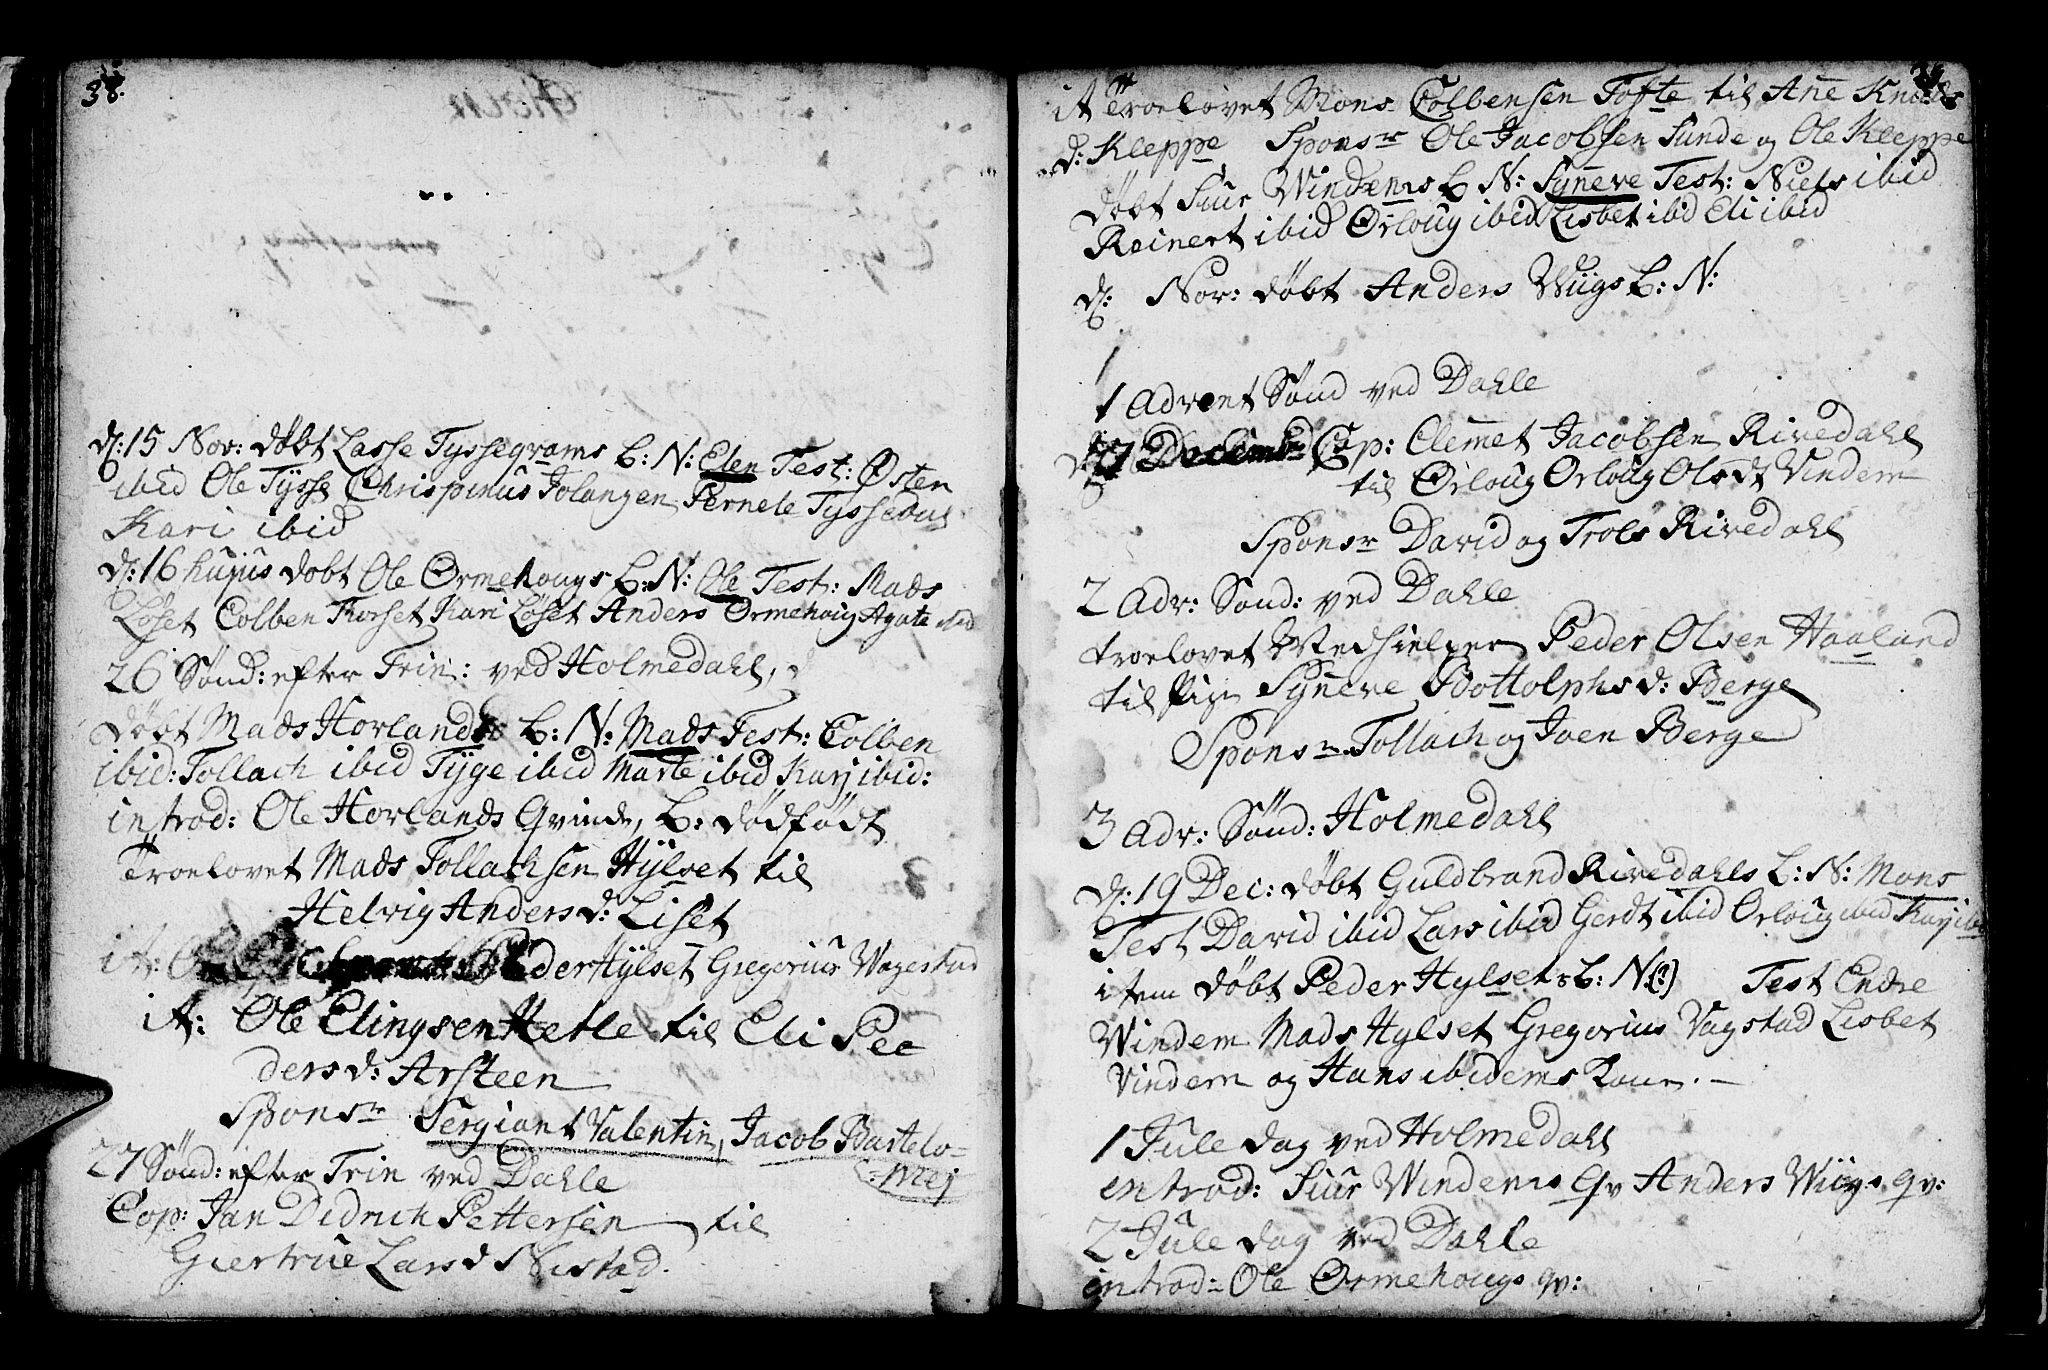 38.
d: 15 Nov: døbt Lasse Tyssegrams B: N: Elen Test: Østen
ibid Ole Tysse Chrispinus Jolangen Pernele Tyssedus
Kari ibid
d: 16 hujus døbt Ole Ørmehougs B: N: Ole Test: Mads
Løset Colben Korset Kari Løset Anders Ørmehoug Agate ibid
26 Sønd: efter Trin: ved Holmedahl
døbt Mads Horlands B: N: Mads Test: Colben
ibid: Tollach ibid Tyge ibid Marte ibid Karj ibid:
introd: Ole Horlands Qvinde, B: dødfødt
Troelovet Mads Tollachsen Hylset til
Helvig Anders d: Liset
it: Peder Hylset Gregorius Wagestad
it: Ole Elingsen Hetle til Eli Pe
ders d: Arsteen
Sponsr Sergiant Valentin, Jacob Bartelo-
mej
27 Sønd: efter Trin ved Dahle
Cop: Jan Didrich Pettersen til
Giertrue Lars d Nistad.
it Troelovet Mons Colbensen Tofte til Ane
d: Kleppe Sponsr Ole Jacobsen Sunde og Ole Kleppe
døbt Siur Windems B N: Syneve Test: Niels ibid
Reinert ibid Ørloug ibid Lisbet ibid Eli ibid
d: Nov: døbt Anders Wiigs B: N:
1 Advent Sønd ved Dahle
Decembr Cop: Clemmet Jacobsen Rivedahl
til Ørloug Orloug Olsdt Vindem
Sponsr David og Trols Rivedahl
2 Adv: Sønd: ved Dahle
troelovet Medhielper Peder Olsen Haaland
til Pige Syneve Bottolphs d: Berge
Sponsr Tollach og Joen Berge
3 Adv: Sønd: Holmedahl
d: 19 Dec: døbt Guldbrand Rivedahls B: N: Mons
Test David ibid Lars ibid Gerdt ibid Orloug ibid Karj ibid
item døbt Peder Hylsets B: N(?) Test Endre
Windem Mads Hylset Gregorius Vagstad Lisbet
Vindem og Hans ibidems Kone.
1 Jule dag ved Holmedahl
introd: Siur Windems Qv Anders Wiigs qv:
2 Jule dag ved Dahle
introd: Ole Ørmehougs qv: